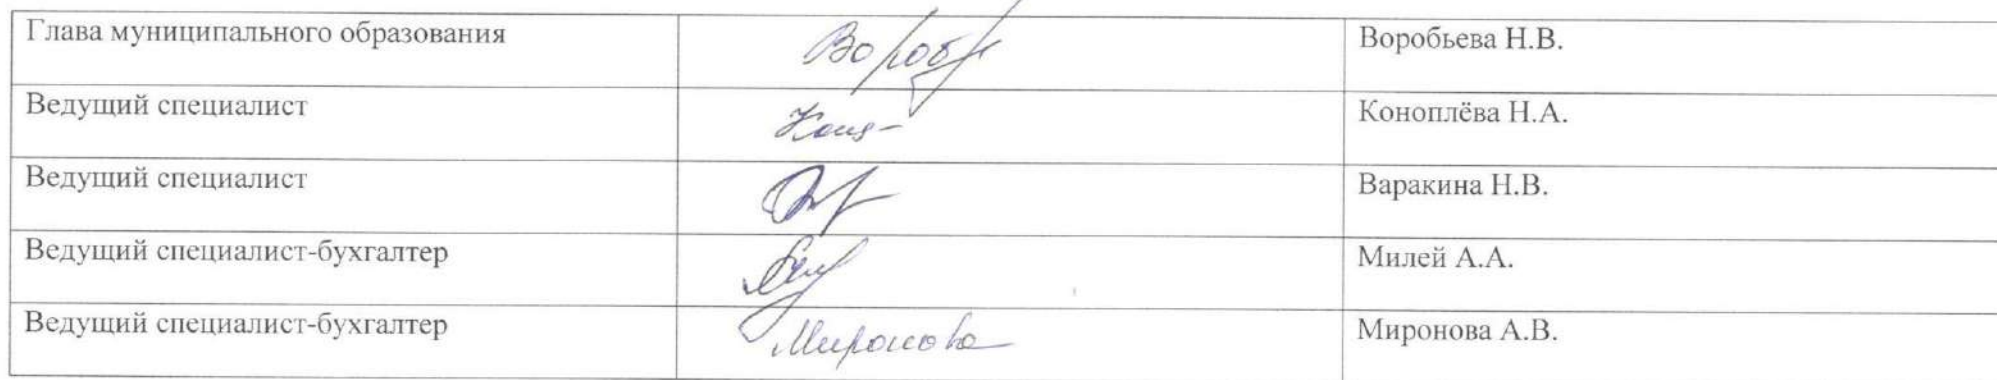 Глава муниципального образования Воробьева Н.В.
Ведущий специалист Коноплёва Н.А.
Ведущий специалист Варакина Н.В.
Ведущий специалист-бухгалтер Милей А.А.
Ведущий специалист-бухгалтер Миронова Миронова А.В.